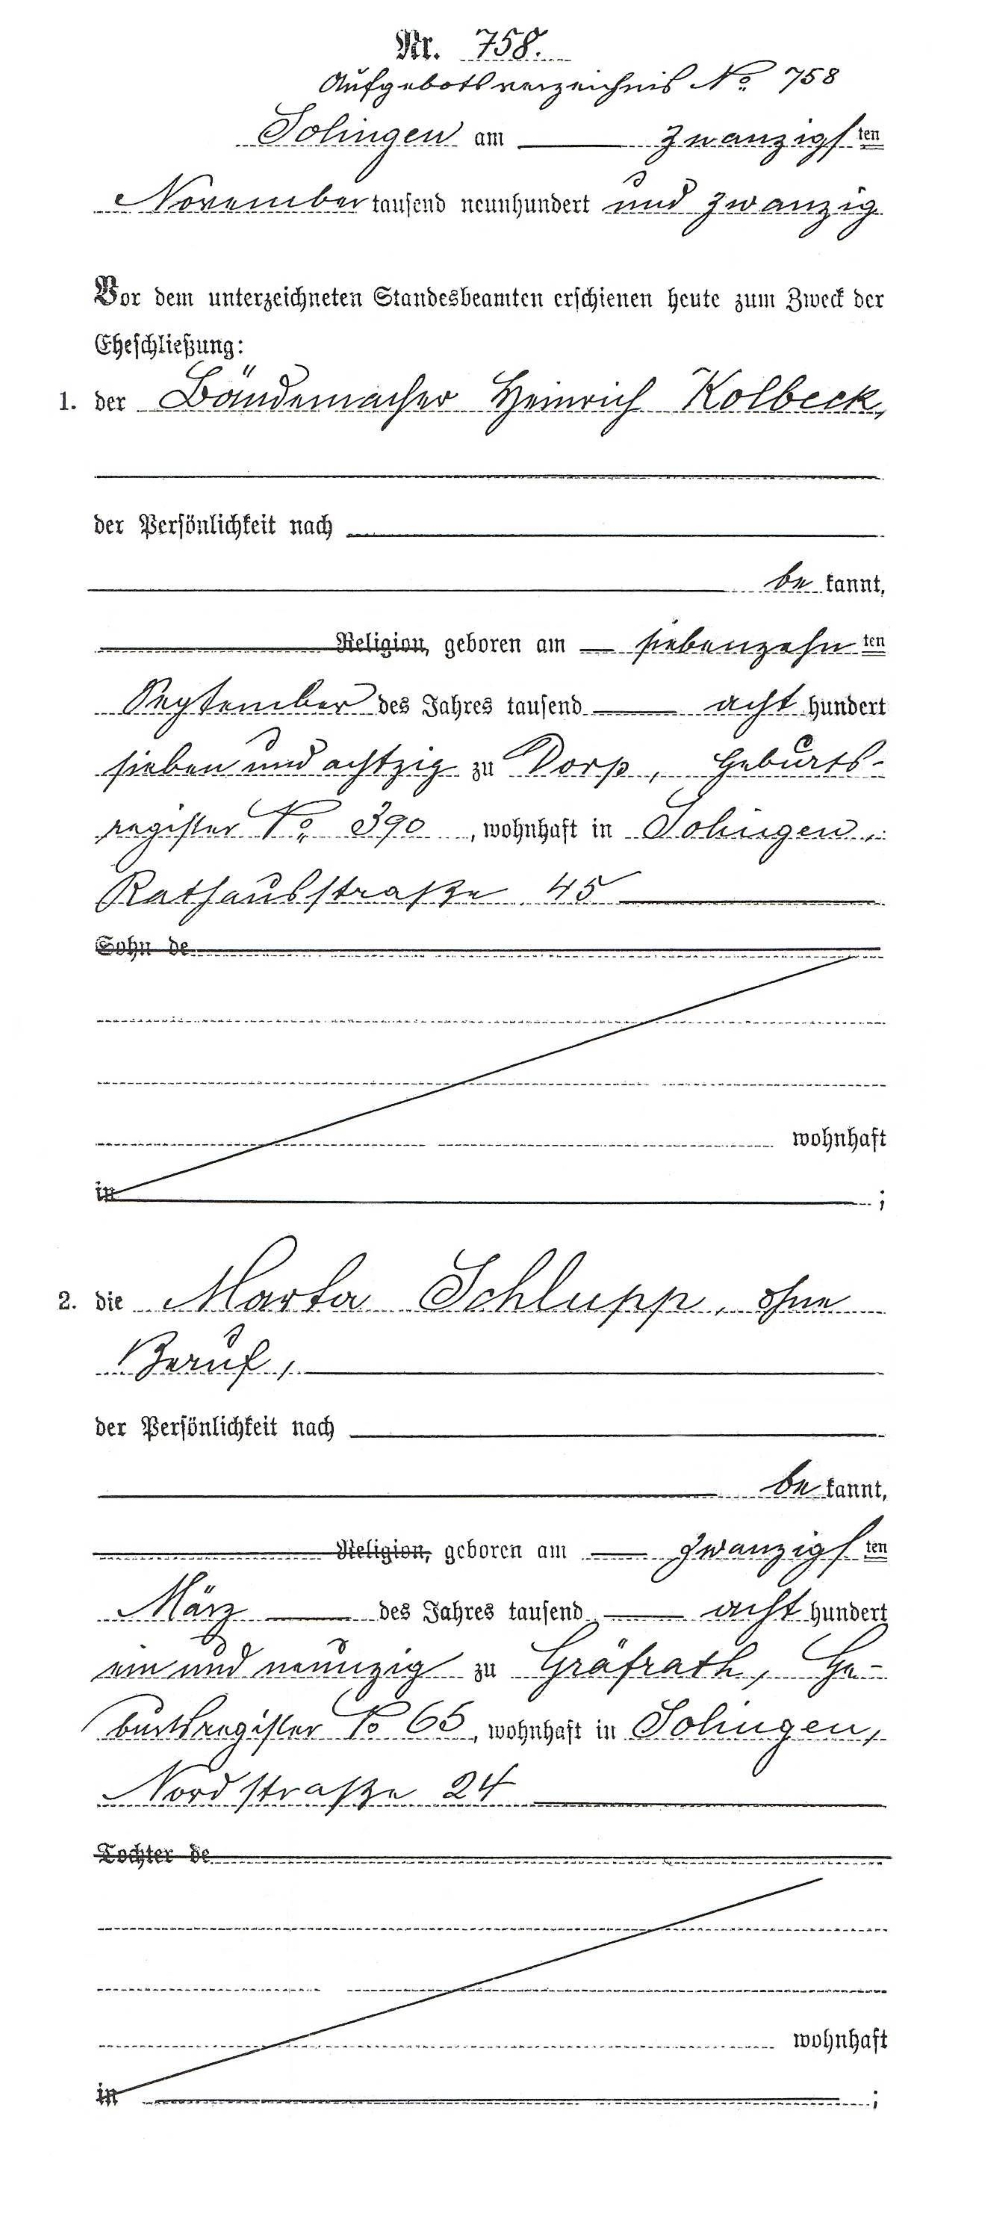 Nr. 758.
Aufgebotsverzeichnis No 758
Solingen am zwanzigsten
November tausend neunhundert und zwanzig
Vor dem unterzeichneten Standesbeamten erschienen heute zum Zweck der
Eheschließung:
1. der Bändemacher Heinrich Kolbeck,
der Persönlichkeit nach
be kannt,
Religion, geboren am siebenzehnten
September des Jahres tausend acht hundert
sieben und achtzig zu Dorp, Geburts-
register No 390, wohnhaft in Solingen,
Rathausstraße 45
Sohn de
wohnhaft
in ;
2. die Marta Schlupp, ohne
Beruf,
der Persönlichkeit nach
be kannt,
Religion, geboren am zwanzigsten
März des Jahres tausend acht hundert
ein und neunzig zu Gräfrath, Ge-
burtsregister No 65, wohnhaft in Solingen,
Nordstraße 24
Tochter de
wohnhaft
in ;